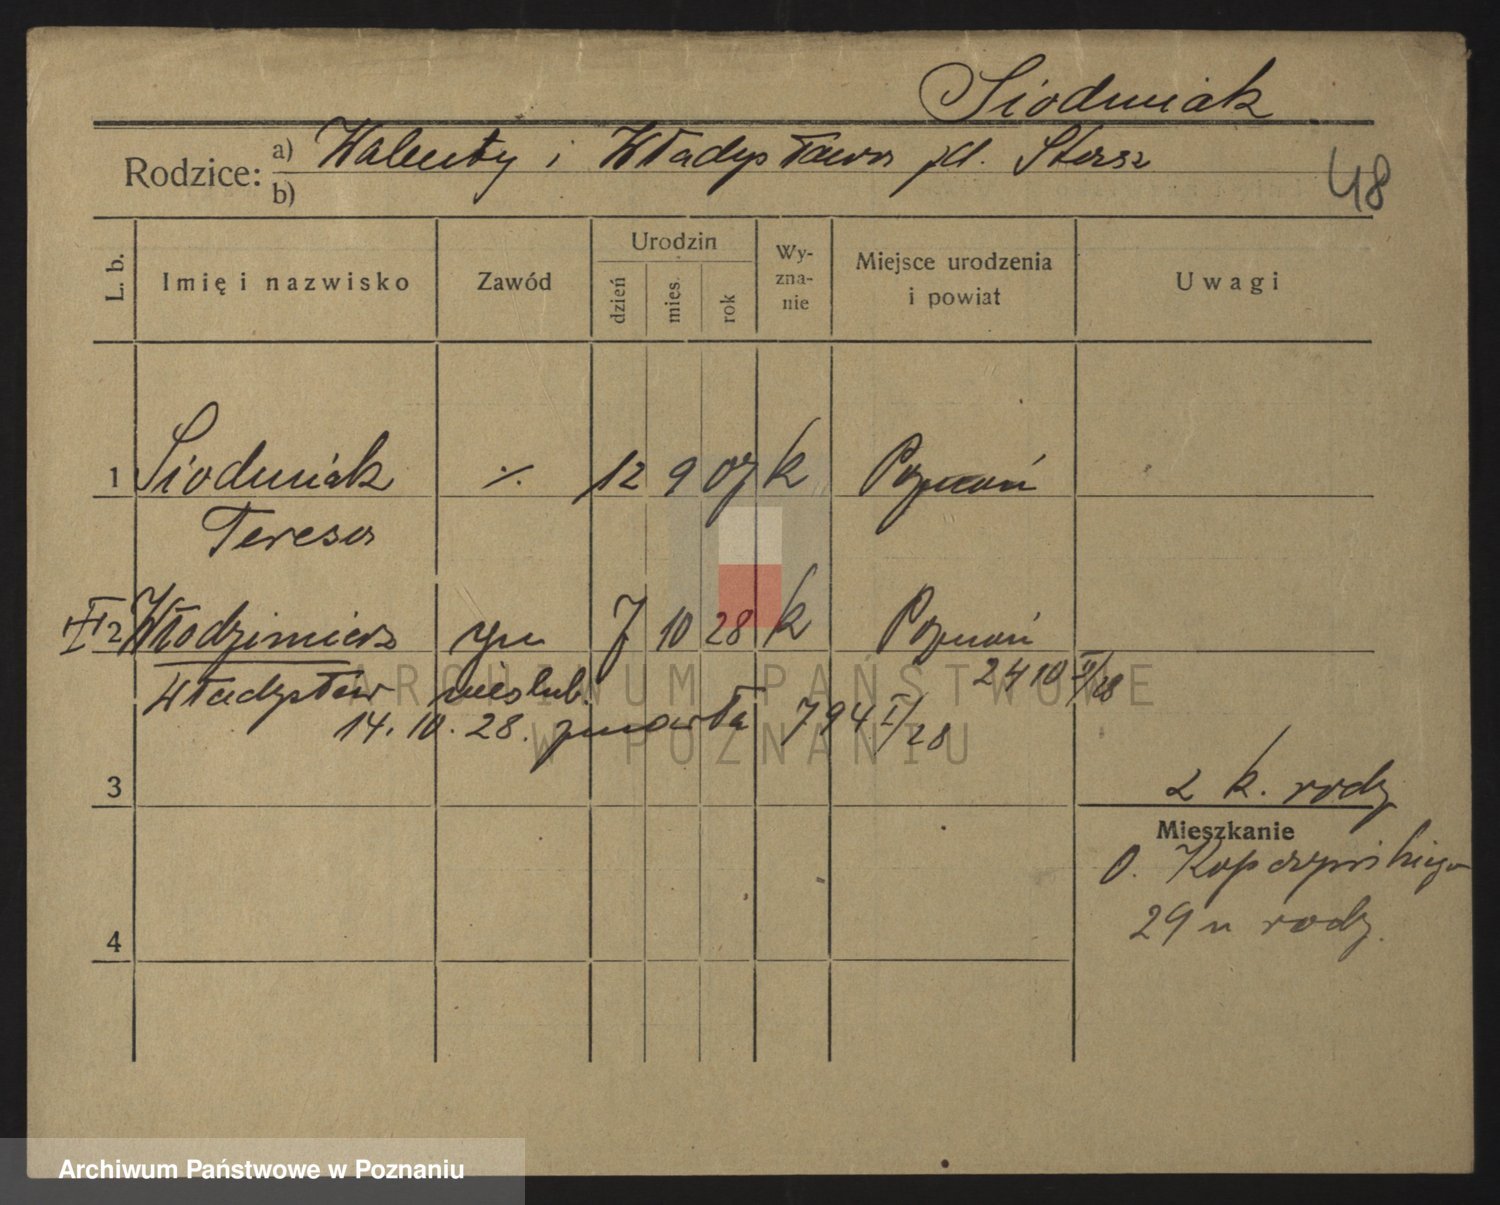 Siodmiak
Rodzice: a) Walenty i Władysława
b)
48
L. b.
Imię i nazwisko
Zawód
Urodzin
dzień
mies.
rok
Wy-
zna-
nie
Miejsce urodzenia
i powiat
Uwagi
1 Siodmiak ·/. 12 9 07 k Poznań
Teresa
2 Włodzimierz syn 7 10 28 k Poznań
Władysław nieślub. 2410 II/28
14. 10. 28. zmarła 794 I/28
3
2 k. rodz
Mieszkanie
O. Kopczyńskiego
29 u rodz.
4
ARCHIWUM PAŃSTWOWE
W POZNANIU
Archiwum Państwowe w Poznaniu